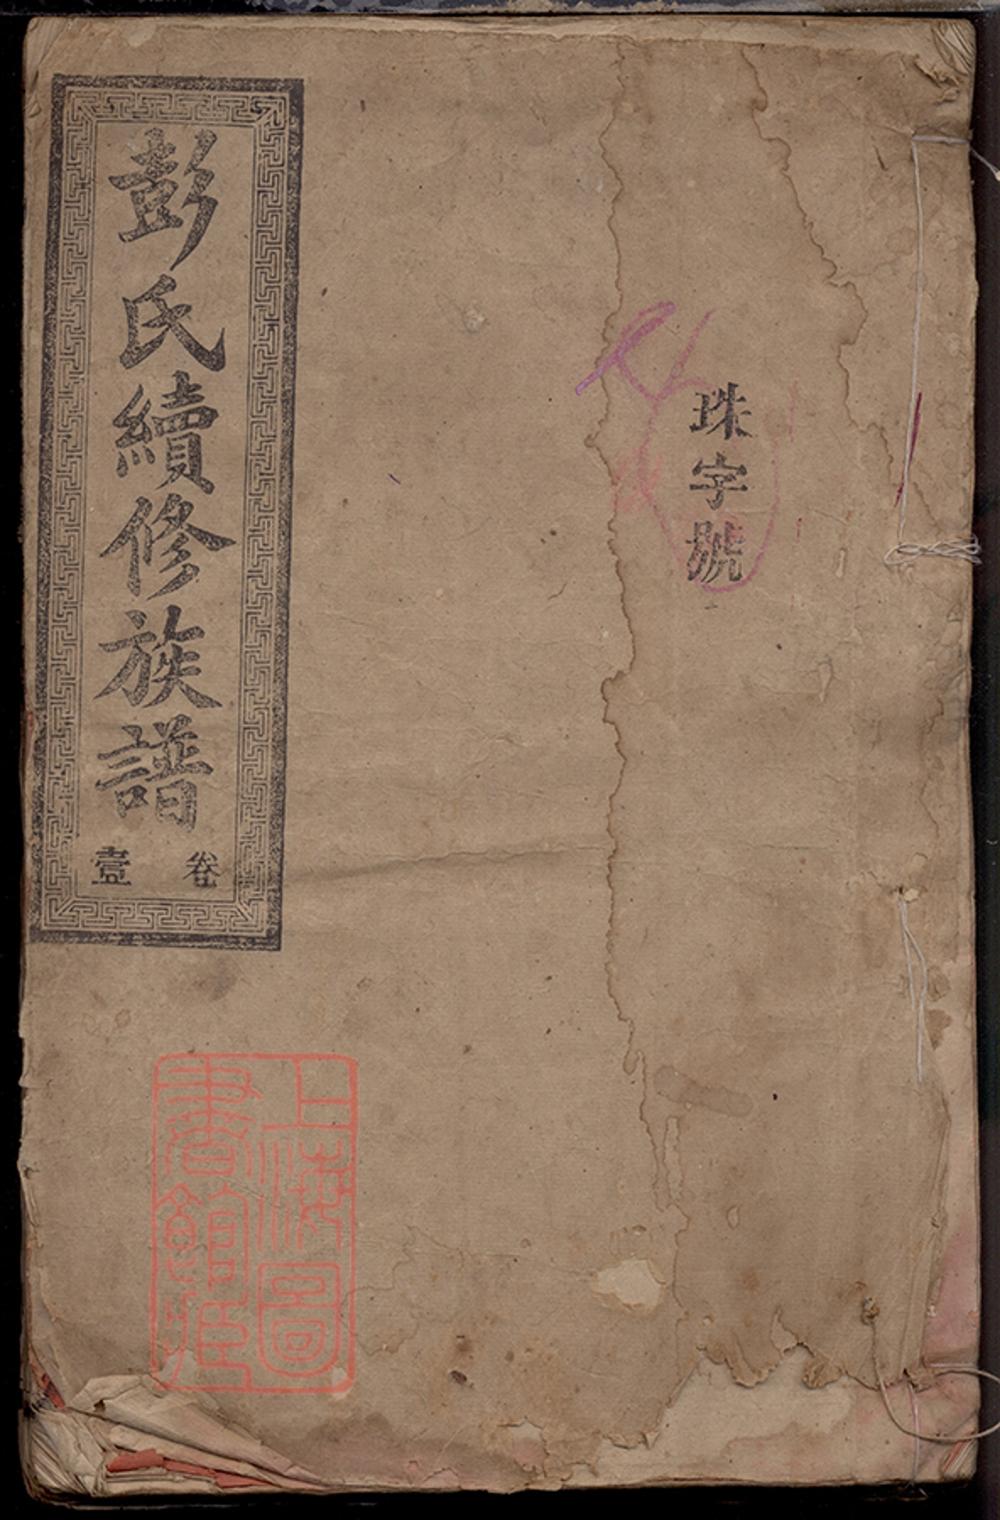 珠字號
彭氏續修族譜
卷壹
上海圖
書館藏